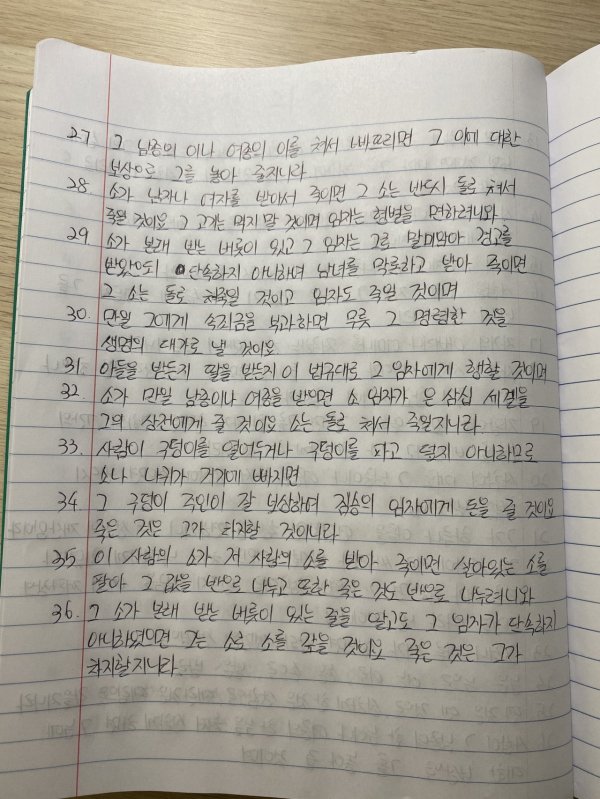 27 그 남종의 이나 여종의 이를 쳐서 빠뜨리면 그 이에 대한
보상으로 그를 놓아 줄지니라
28 소가 남자나 여자를 받아서 죽이면 그 소는 반드시 돌로 쳐서
죽일 것이요 그 고기는 먹지 말 것이며 임자는 형벌을 면하려니와
29 소가 본래 받는 버릇이 있고 그 임자는 그로 말미암아 경고를
받았으되 단속하지 아니하여 남녀를 막론하고 받아 죽이면
그 소는 돌로 쳐죽일 것이고 임자도 죽일 것이며
30. 만일 그에게 속죄금을 부과하면 무릇 그 명령한 것을
생명의 대가로 낼 것이요
31. 아들을 받든지 딸을 받든지 이 법규대로 그 임자에게 행할 것이며
32. 소가 만일 남종이나 여종을 받으면 소 임자가 은 삼십 세겔을
그의 상전에게 줄 것이요 소는 돌로 쳐서 죽일지니라.
33. 사람이 구덩이를 열어두거나 구덩이를 파고 덮지 아니하므로
소나 나귀가 거기에 빠지면
34. 그 구덩이 주인이 잘 보상하며 짐승의 임자에게 돈을 줄 것이요
죽은 것은 그가 차지할 것이니라
35 이 사람의 소가 저 사람의 소를 받아 죽이면 살아있는 소를
팔아 그 값을 반으로 나누고 또한 죽은 것도 반으로 나누려니와
36. 그 소가 본래 받는 버릇이 있는 줄을 알고도 그 임자가 단속하지
아니하였으면 그는 소로 소를 갚을 것이요 죽은 것은 그가
차지할지니라